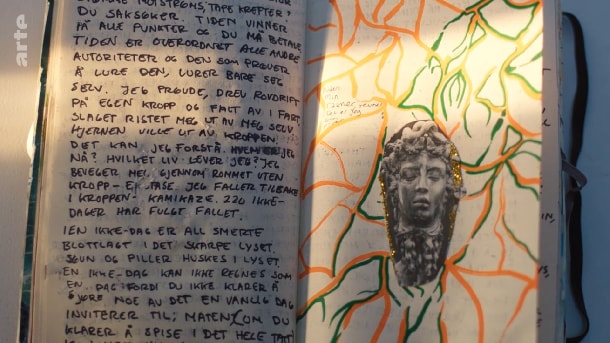 arte
MOTSTRØMS, TAPE KREFTER?
DU SAKSØKER. TIDEN VINNER
PÅ ALLE PUNKTER OG DU MÅ BETALE
TIDEN ER OVERORDNET ALLE ANDRE
AUTORITETER OG DEN SOM PRØVER
Å LURE DEN, LURER BARE SEG
SELV. JEG PRØVDE, DREV ROVDRIFT
PÅ EGEN KROPP OG FALT AV I FART
SLAGET RISTET MEG UT AV MEG SELV
HJERNEN VILLE UT AV KROPPEN.
DET KAN JEG FORSTÅ. JEG
NÅ? HVILKET LIV LEVER JEG? JEG
BEVEGER MEG GJENNOM ROMMET UTEN
KROPP - EKSTASE. JEG FALLER TILBAKE
I KROPPEN - KAMIKAZE. 220 IKKE-
DAGER HAR FULGT FALLET.
I EN IKKE-DAG ER ALL SMERTE
BLOTTLAGT I DET SKARPE LYSET.
SØVN OG PILLER HUSKES I LYSET.
EN IKKE-DAG KAN IKKE REGNES SOM
EN DAG FORDI DU IKKE KLARER Å
GJØRE NOE AV DET EN VANLIG DAG
INVITERER TIL; MATEN (OM DU
KLARER Å SPISE I DET HELE TATT